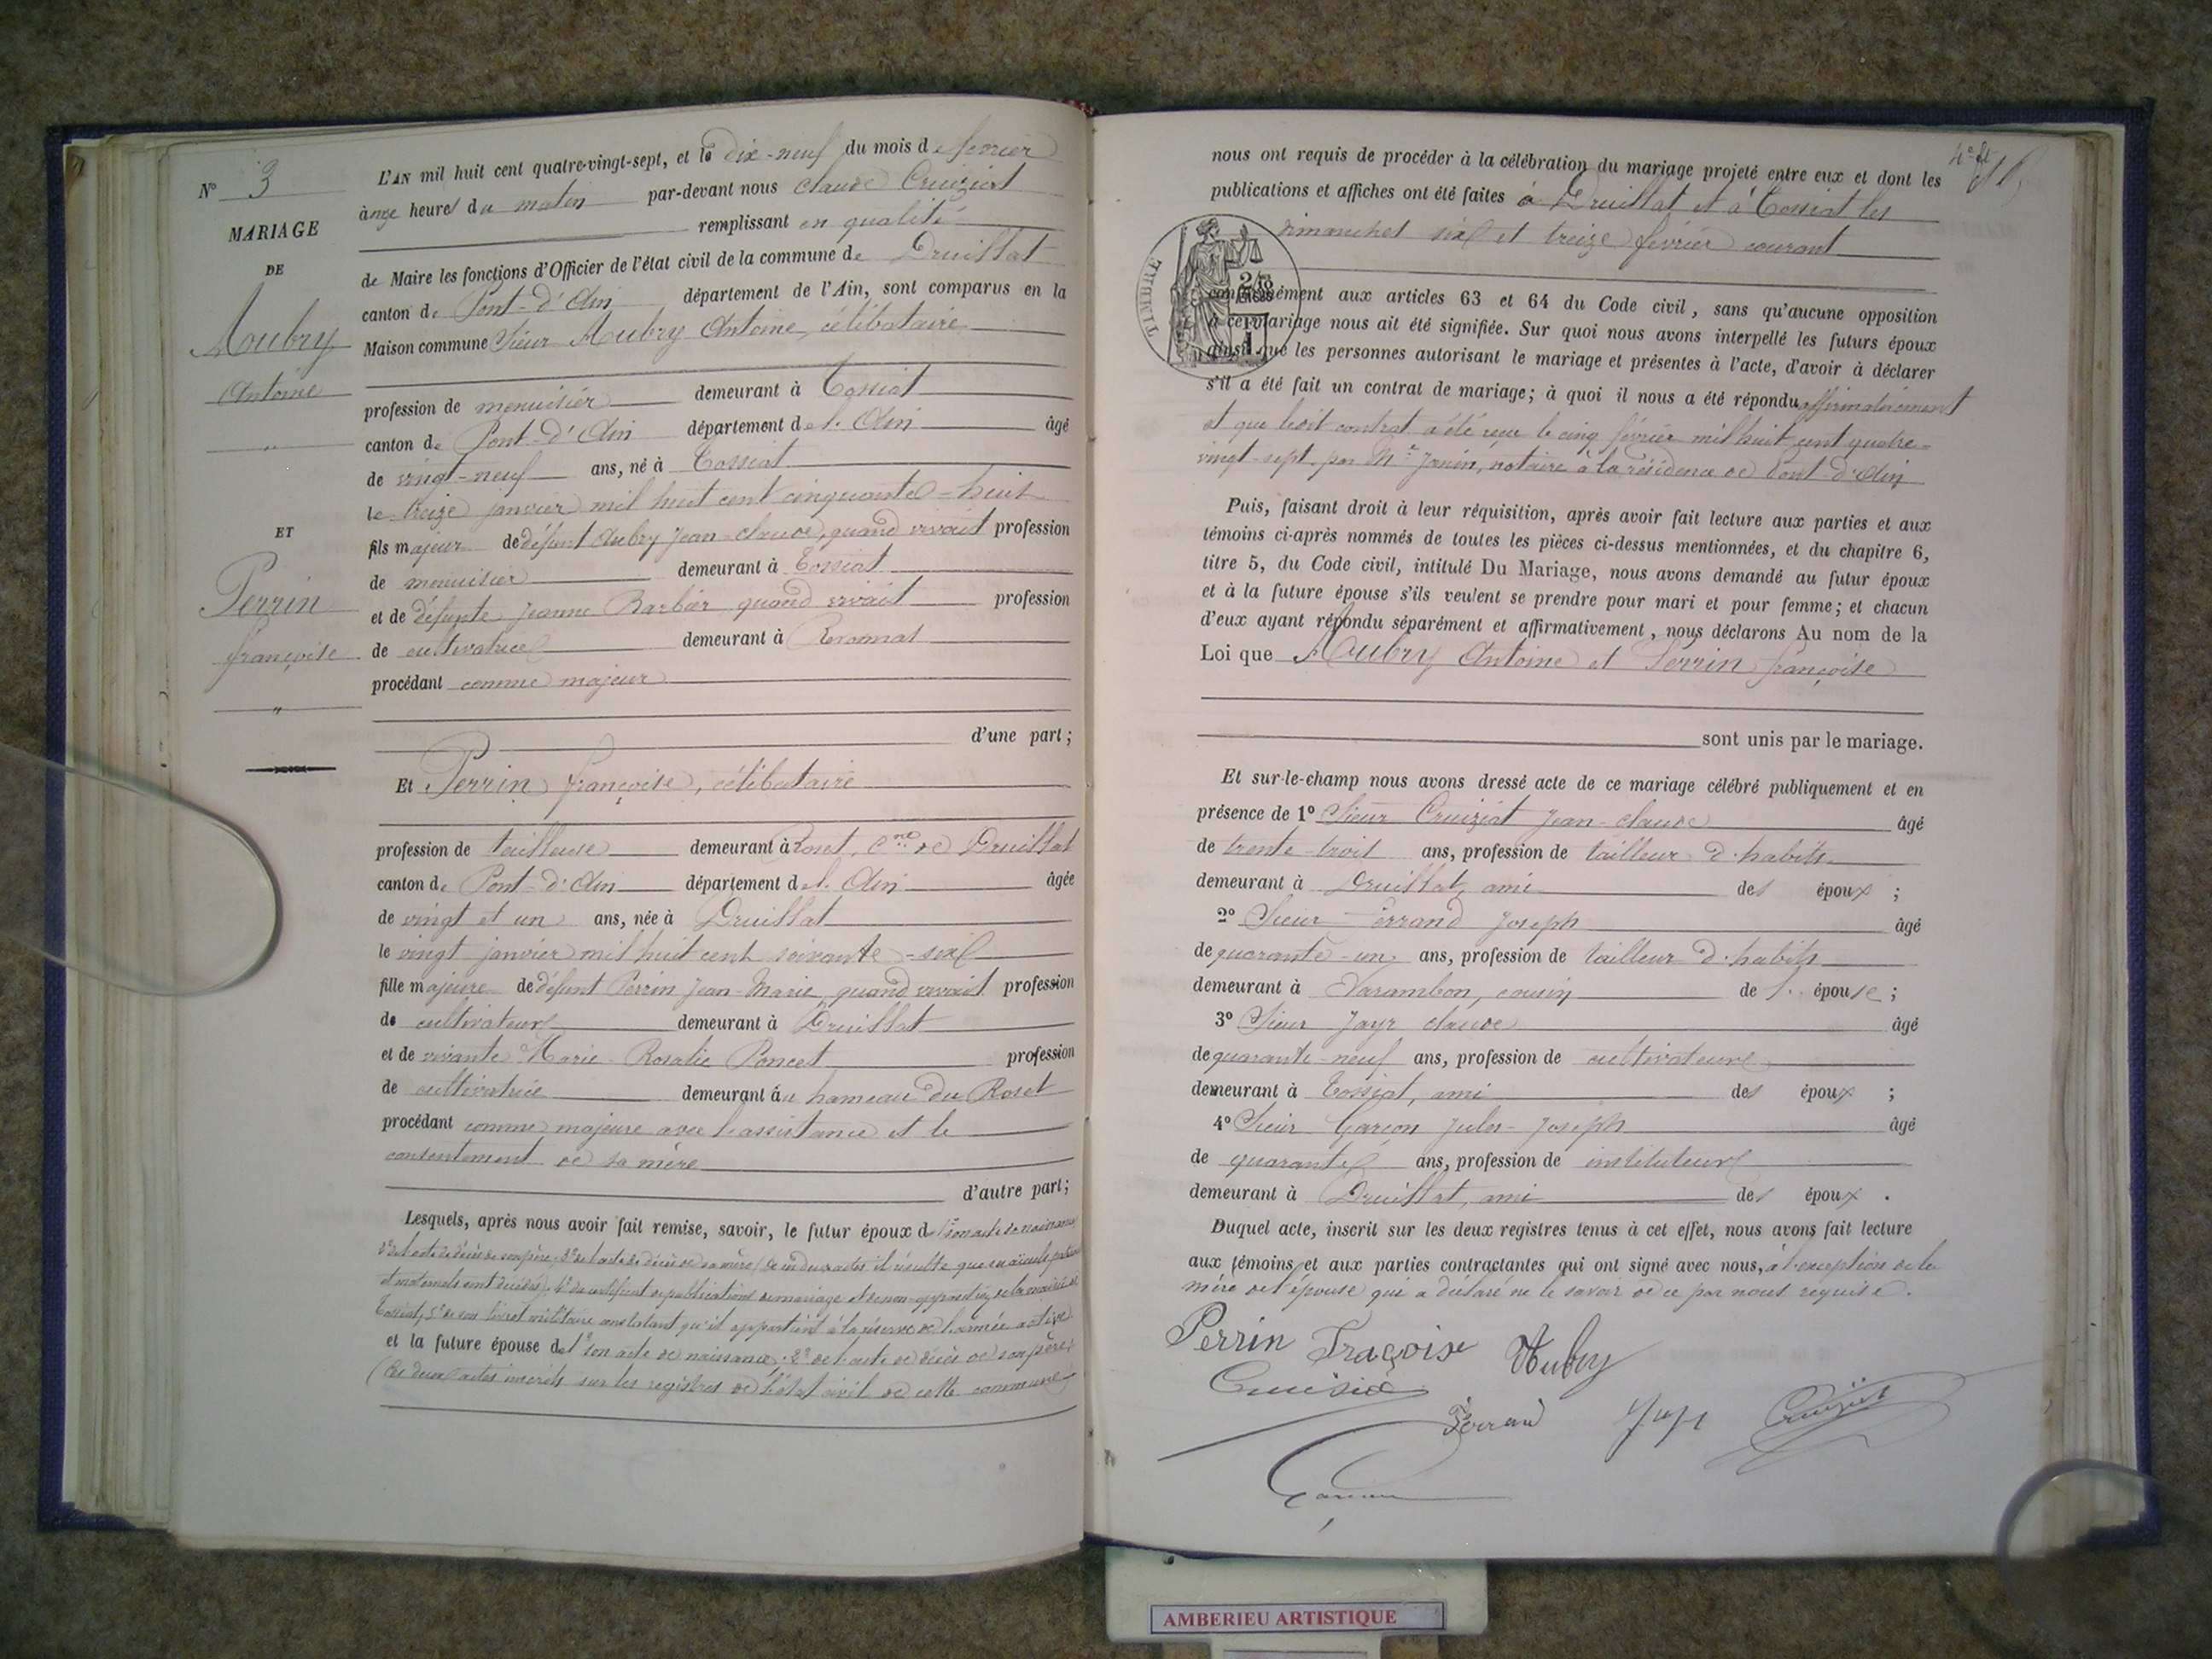 N° 3
MARIAGE
DE
Aubry
Antoine
"
ET
Perrin
françoise
"
L'AN mil huit cent quatre-vingt-sept, et le dix-neuf du mois de février
à onze heures du matin par-devant nous Claude Cruiziat
remplissant en qualité
de Maire les fonctions d'Officier de l'état civil de la commune de Druillat
canton de Pont-d'Ain département de l'Ain, sont comparus en la
Maison commune Sieur Aubry Antoine, célibataire
profession de menuisier demeurant à Tossiat
canton de Pont-d'Ain département de l'Ain âgé
de vingt-neuf ans, né à Tossiat
le treize janvier mil huit cent cinquante-huit
fils majeur de défunt Aubry Jean-Claude, quand vivait profession
de menuisier demeurant à Tossiat
et de défunte Jeanne Barbier quand vivait profession
de cultivatrice demeurant à Revonnas
procédant comme majeur
d'une part;
Et Perrin françoise, célibataire
profession de tailleuse demeurant à Roset, Cne de Druillat
canton de Pont-d'Ain département de l'Ain âgée
de vingt et un ans, née à Druillat
le vingt janvier mil huit cent soixante-six
fille majeure de défunt Perrin Jean-Marie, quand vivait profession
de cultivateur demeurant à Druillat
et de vivante Marie-Rosalie Poncet profession
de cultivatrice demeurant au hameau du Roset
procédant comme majeure avec l'assistance et le
contentement de sa mère
d'autre part;
Lesquels, après nous avoir fait remise, savoir, le futur époux de 1° son acte de naissance
2° de l'acte de décès de son père, 3° de l'acte de décès de sa mère (de ces deux actes il résulte que ses aïeuls paternels
et maternels sont décédés), 4° du certificat de publications de mariage et de non-opposition de la mairie de
Tossiat, 5° de son livret militaire constatant qu'il appartient à la réserve de l'armée active
et la future épouse de 1° son acte de naissance, 2° de l'acte de décès de son père,
(Ces deux actes inscrits sur les registres de l'état civil de cette commune)
nous ont requis de procéder à la célébration du mariage projeté entre eux et dont les
publications et affiches ont été faites à Druillat et à Tossiat les
dimanches six et treize février courant
TIMBRE
conformément aux articles 63 et 64 du Code civil, sans qu'aucune opposition
à ce mariage nous ait été signifiée. Sur quoi nous avons interpellé les futurs époux
ainsi que les personnes autorisant le mariage et présentes à l'acte, d'avoir à déclarer
s'il a été fait un contrat de mariage; à quoi il nous a été répondu affirmativement
et que ledit contrat a été reçu le cinq février mil huit cent quatre-
vingt-sept, par Me Janin, notaire à la résidence de Pont-d'Ain
Puis, faisant droit à leur réquisition, après avoir fait lecture aux parties et aux
témoins ci-après nommés de toutes les pièces ci-dessus mentionnées, et du chapitre 6,
titre 5, du Code civil, intitulé Du Mariage, nous avons demandé au futur époux
et à la future épouse s'ils veulent se prendre pour mari et pour femme; et chacun
d'eux ayant répondu séparément et affirmativement, nous déclarons Au nom de la
Loi que Aubry Antoine et Perrin françoise
sont unis par le mariage.
Et sur-le-champ nous avons dressé acte de ce mariage célébré publiquement et en
présence de 1° Sieur Cruiziat Jean-Claude âgé
de trente-trois ans, profession de tailleur d'habits
demeurant à Druillat, ami des époux ;
2° Sieur Ferrand Joseph âgé
de quarante-un ans, profession de tailleur d'habits
demeurant à Varambon, cousin de l'épouse ;
3° Sieur Jayr Claude âgé
de quarante-neuf ans, profession de cultivateur
demeurant à Tossiat, ami des époux ;
4° Sieur Garçon Jules-Joseph âgé
de quarante ans, profession de instituteur
demeurant à Druillat, ami des époux .
Duquel acte, inscrit sur les deux registres tenus à cet effet, nous avons fait lecture
aux témoins et aux parties contractantes qui ont signé avec nous, à l'exception de la
mère de l'épouse qui a déclaré ne le savoir de ce par nous requise.
Perrin Fraçoise Aubry
Cruiziat
Ferrand Jayr Cruiziat
Garçon
AMBERIEU ARTISTIQUE